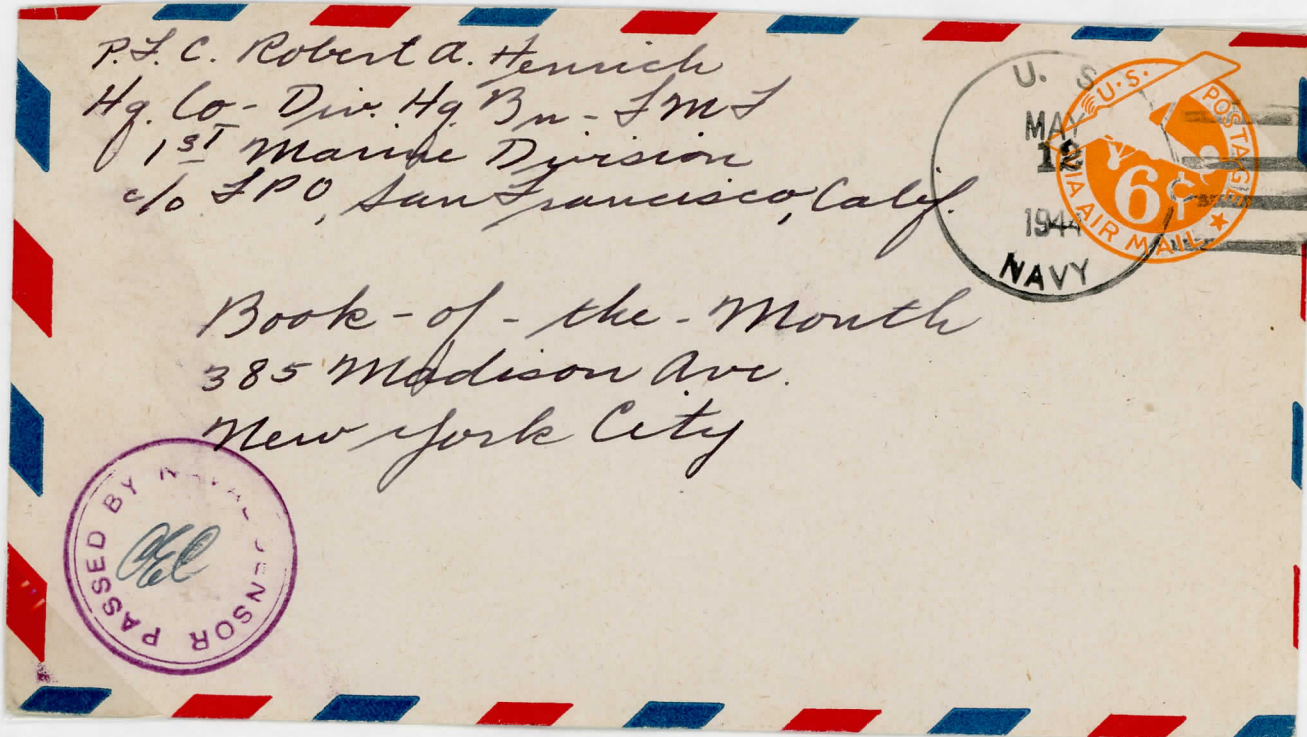 P.F.C. Robert A. Henrich
Hq. Co - Div. Hq Bn - FMF
1st Marine Division
c/o FPO, San Francisco, Calif.
U. S.
MAY
12
1944
NAVY
U.S. POSTAGE
VIA AIR MAIL
6¢
Book-of-the-Month
385 Madison Ave.
New York City
PASSED BY NAVAL CENSOR